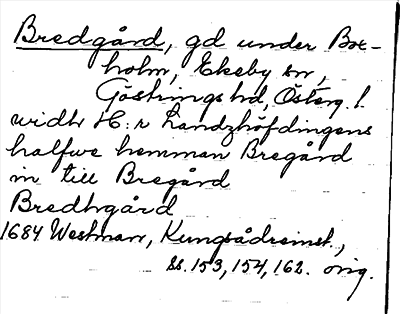 Bredgård, gd under Box-
holm, Ekeby sn,
Göstrings hd, Österg. l.
widh H:r Landzhöfdingens
halfwe hemman Bregård
m till Bregård
Bredhgård
1684 Westman, Kungsådreinst.,
ss. 153, 154, 162. orig.